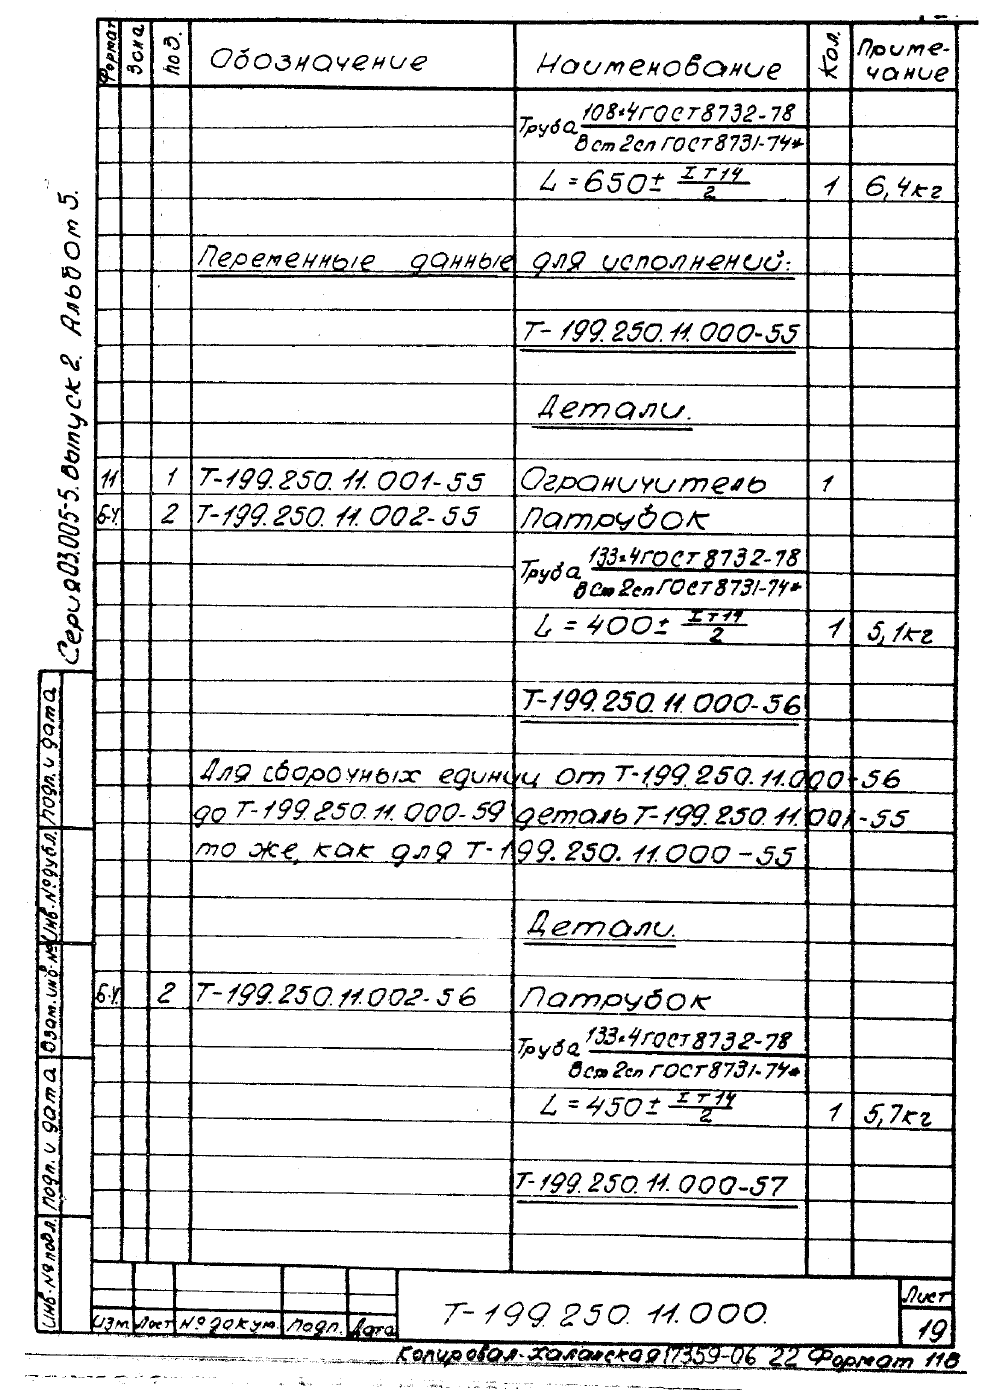 Формат Зона Поз. Обозначение Наименование Кол. Приме-
чание
Труба 108×4 ГОСТ 8732-78
В ст 2сп ГОСТ 8731-74*
L = 650 ± IT14/2 1 6,4кг
Переменные данные для исполнений:
Т-199.250.11.000-55
Детали.
11 1 Т-199.250.11.001-55 Ограничитель 1
Б.Ч. 2 Т-199.250.11.002-55 Патрубок
Труба 133×4 ГОСТ 8732-78
В Ст 2сп ГОСТ 8731-74*
L = 400 ± IT14/2 1 5,1кг
Т-199.250.11.000-56
Для сборочных единиц от Т-199.250.11.000-56
до Т-199.250.11.000-59 деталь Т-199.250.11.001-55
то же, как для Т-199.250.11.000-55
Детали.
Б.Ч. 2 Т-199.250.11.002-56 Патрубок
Труба 133×4 ГОСТ 8732-78
В Ст 2сп ГОСТ 8731-74*
L = 450 ± IT14/2 1 5,7кг
Т-199.250.11.000-57
Серия 03.005-5. Выпуск 2. Альбом 5.
Подп. и дата
Инв. № дубл.
Взам. инв. №
Подп. и дата
Инв. № подл.
Изм. Лист № докум. Подп. Дата
Т-199.250.11.000.
Лист
19
Копировал- Халанская 17359-06 22 Формат 11В